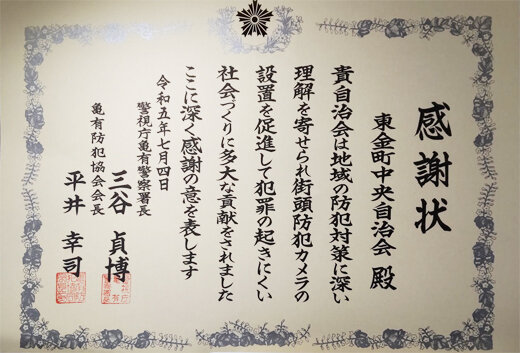 感謝状
東金町中央自治会 殿
貴自治会は地域の防犯対策に深い
理解を寄せられ街頭防犯カメラの
設置を促進して犯罪の起きにくい
社会づくりに多大な貢献をされました
ここに深く感謝の意を表します
令和五年七月四日
警視庁亀有警察署長
三谷 貞博
亀有防犯協会会長
平井 幸司